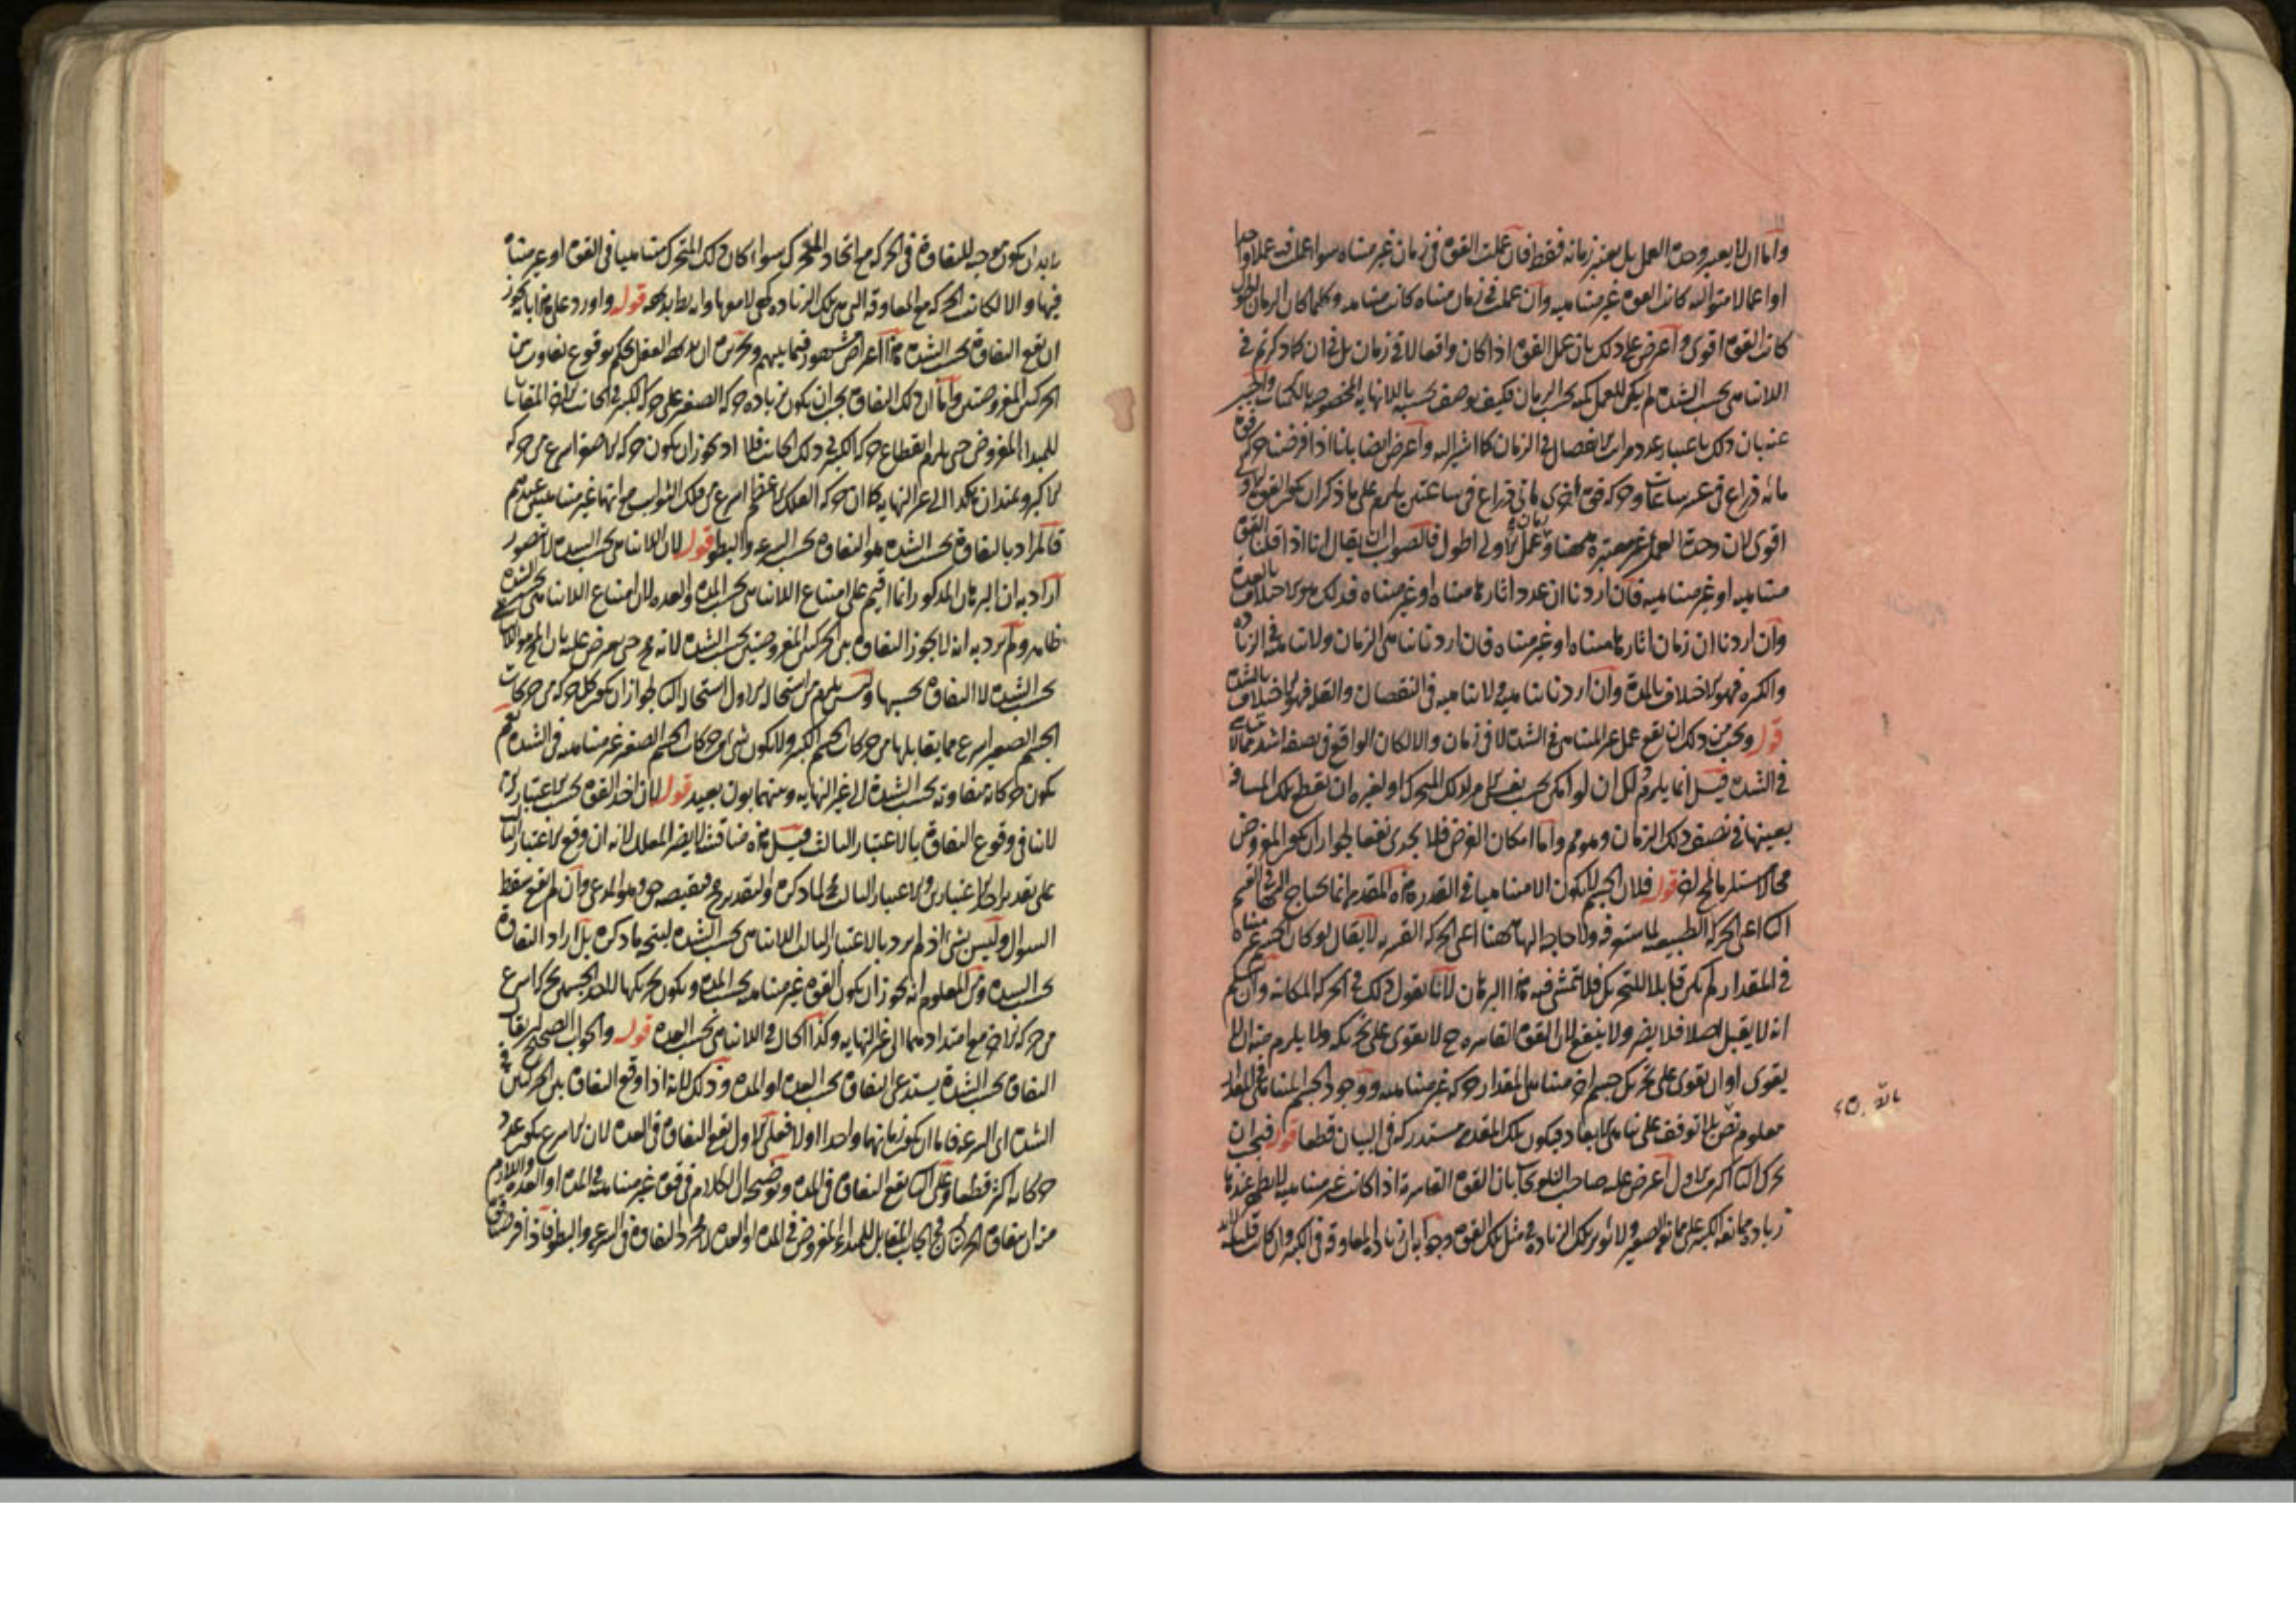 واما ان لا يعتبر وحدة العمل بل يعتبر زمانه فقط فان عملت القوة في زمان غير متناه سواء عملت فيه عملا واحدا
او اعمالا متوالية كانت القوة غير متناهية وان عملت في زمان متناه كانت متناهية وكلما كان الزمان اطول
كانت القوة اقوى واعترض على ذلك بان عمل القوة اذا كان واقعا لا في زمان بل في ان كما ذكرتم في
اللاتناهي بحسب الشدة لم يكن للعمل كمية بحسب الزمان فكيف يوصف بحسبه باللانهاية المخصوصة بالكميات واجيب
عنه بان ذلك باعتبار عدد مراتب الانفصال في الزمان كما اشير اليه واعترض ايضا بانا اذا فرضنا حركة قوة
مائة ذراع في عشر ساعات وحركة قوة اخرى مائتي ذراع في ساعتين يلزم على ما ذكر ان تكون القوة الاولى
اقوى لان وحدة العمل غير معتبرة ههنا وزمان عمل الاولى اطول فالصواب ان يقال انا اذا قلنا القوة
متناهية او غير متناهية فان اردنا ان عدد اثارها متناه او غير متناه فذلك هو الاختلاف بالعدة
وان اردنا ان زمان اثارها متناه او غير متناه فان اردنا تناهي الزمان ولا تناهيه في الزيادة
والكثرة فهو الاختلاف بالمدة وان اردنا تناهيه ولا تناهيه في النقصان والقلة فهو الاختلاف بالشدة
قوله ويجب من ذلك ان يقع عمل غير المتناهي في الشدة لا في زمان والا لكان الواقع في نصفه اشد مما لا يتناهى
في الشدة قيل انما يلزم ذلك ان لو امكن بحسب نفس الامر لذلك المتحرك او لغيره ان يقطع تلك المسافة
بعينها في نصف ذلك الزمان وهو مم واما امكان الفرض فلا يجدي نفعا لجواز ان يكون المفروض
محالا مستلزما لمحال اخر قوله فلان الجسم لا يكون الا متناهيا في القدر هذه المقدمة انما يحتاج اليها في القسم
الثاني اعني الحركة الطبيعية لما ستعرفه ولا حاجة اليها ههنا اعني الحركة القسرية لا يقال لو كان الجسم غير متناه
في المقدار لم يكن قابلا للتحريك فلا يتمشى فيه هذا البرهان لانا نقول ذلك في الحركة المكانية وان سلم
انه لا يقبل اصلا فلا يضر ولا ينفع لان القوة القاسرة ح لا تقوى على تحريكه ولا يلزم منه ان لا
يقوى اوان تقوى على تحريك جسم اخر متناهي المقدار حركة غير متناهية ووجود الجسم المتناهي المقدار
معلوم نص بلا توقف على تناهي الابعاد فيكون تلك المقدمة مستدركة في البيان قطعا قوله فيجب ان
تحرك الثاني اكثر من الاول اعترض عليه صاحب التلويحات بان القوة القاسرة اذا كانت غير متناهية لا يظهر عندها
زيادة ممانعة الكبير على ممانعة الصغير ولا تؤثر تلك الزيادة في مثل تلك القوة وجوابه ان زيادة المعاوقة في الكبير وان كانت قليلة
بالغ
لا بد ان يكون موجبه للتفاوت في الحركة مع اتحاد المحرك سواء كان ذلك المتحرك متناهيا في القوة او غير متناه
فيها والا لكانت الحركة مع المعاوقة التي هي تلك الزيادة كهي لا معها وانه بط بديهة قوله واورد على هذا بانه يجوز
ان يقع التفاوت بحسب الشدة هذا اعتراض مشهور فيما بينهم وتحريره ان بديهة العقل يحكم بوقوع تفاوت بين
الحركتين المفروضتين واما ان ذلك التفاوت يجب ان يكون بزيادة حركة الصغير على حركة الكبير في الجانب الاخر المقابل
للمبدا المفروض حتى يلزم انقطاع حركة الكبير في ذلك الجانب فلا اذ يجوز ان يكون حركة الاصغر اسرع من حركة
الاكبر ويمتدان هكذا الى غير النهاية كما ان حركة الفلك الاعظم اسرع من فلك الثوابت مع انهما غير متناهيين عندهم
فالمراد بالتفاوت بحسب الشدة هو التفاوت بحسب السرعة والبطؤ قوله لان اللاتناهي بحسب الشدة لا يتصور
اراد به ان البرهان المذكور انما اقيم على امتناع اللاتناهي بحسب المدة والعدة لان امتناع اللاتناهي بحسب الشدة
ظاهر ولم يرد به انه لا يجوز التفاوت بين الحركتين المفروضتين بحسب الشدة لانه ح حتى يعترض عليه بان المح هو اللاتناهي
بحسب الشدة لا التفاوت بحسبها وليس يلزم من استحالة الاول استحالة الثاني لجواز ان يكون كل حركة من حركات
الجسم الصغير اسرع مما يقابلها من حركات الجسم الكبير ولا يكون شئ من حركات الجسم الصغير غير متناهية في الشدة نعم
تكون حركاته متفاوتة بحسب الشدة الى غير النهاية وبينهما بون بعيد قوله لان اخذ القوة بحسب الاعتبارين
لا ينافي وقوع التفاوت بالاعتبار الثالث قيل هذه مناقشة لا يضر المعلل لانه ان وقع الاعتبار الثالث
على تقدير احد الاعتبارين والاعتبار الثالث مح لما ذكره والتقدير مح فنقيضه حق وهو المدعى وان لم يقع سقط
السؤال وليس بشئ اذ لم يرد بالاعتبار الثالث اللاتناهي بحسب الشدة ليتجه ما ذكره بل اراد التفاوت
بحسب الشدة ومن المعلوم انه يجوز ان يكون القوة غير متناهية بحسب المدة ويكون تحريكها لاحد الجسمين تحريكا اسرع
من حركة الاخر مع امتدادهما الى غير النهاية وكذا الحال في اللاتناهي بحسب العدة قوله والجواب الصحيح ان يقال
التفاوت بحسب الشدة يستدعي التفاوت بحسب العدة او المدة وذلك لانه اذا وقع التفاوت بين الحركتين في
الشدة اي السرعة فاما ان يكون زمانهما واحدا اولا فعلى الاول يقع التفاوت في العدة لان الاسرع يكون عدد
حركاته اكثر قطعا وعلى الثاني يقع التفاوت في المدة وتوضيحه ان الكلام في قوة غير متناهية في المدة او العدة واللازم
منه ان يتفاوت الحركتان في الجانب المقابل للمبداء المفروض في المدة او العدة لا مجرد التفاوت في السرعة والبطؤ فاذا فرضنا قوة